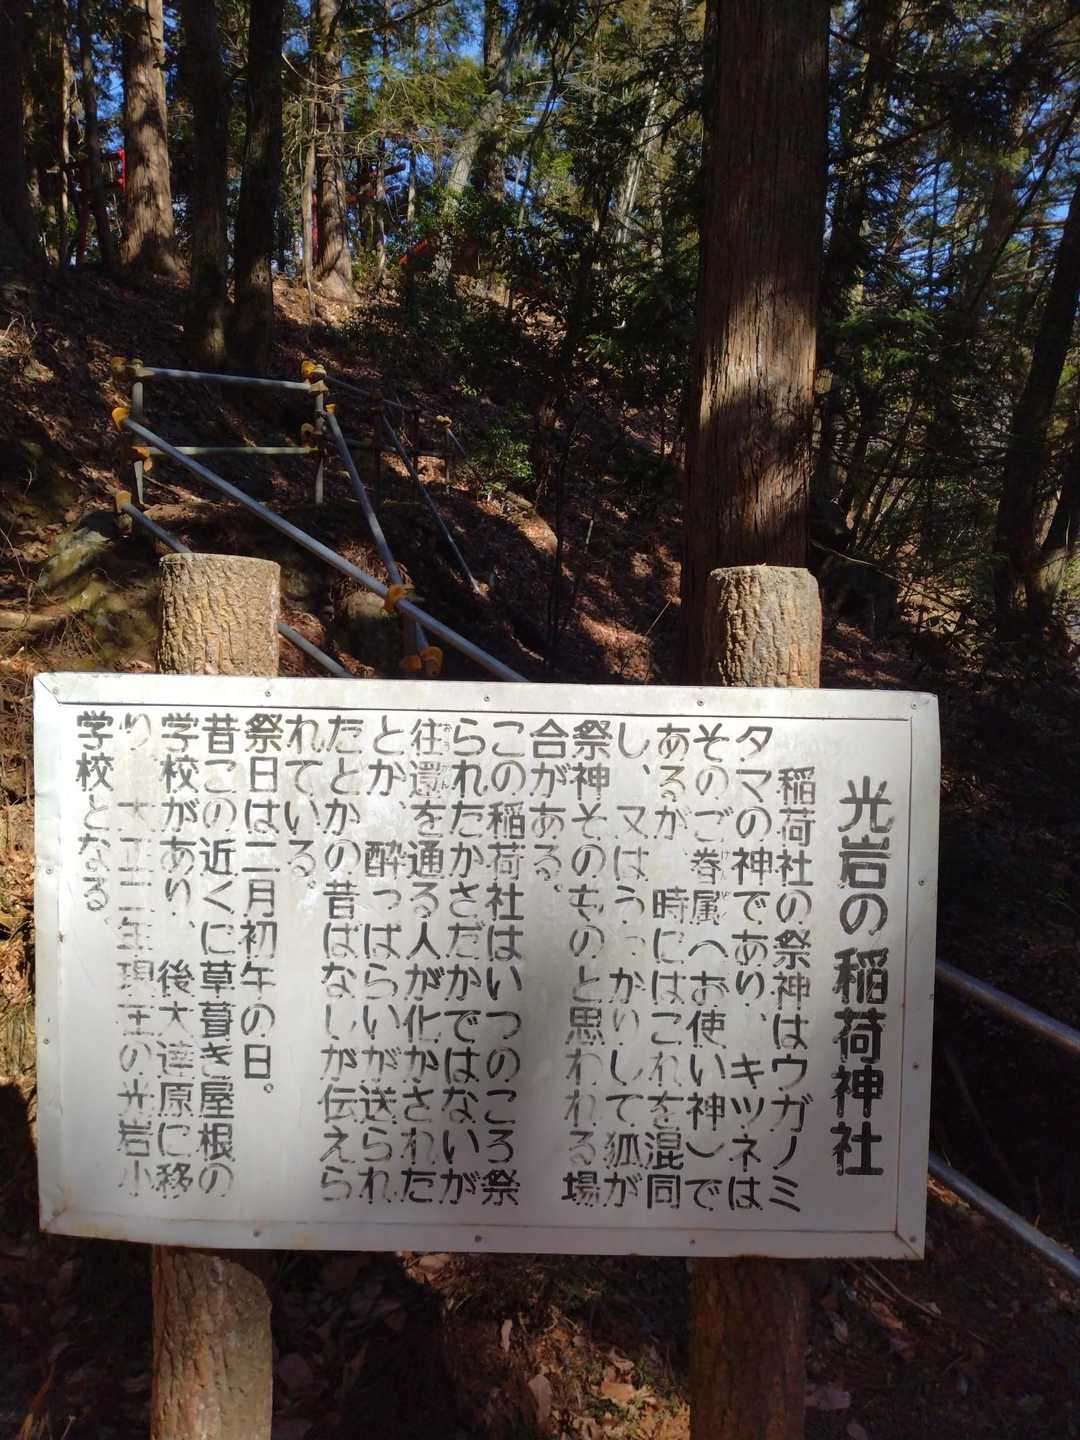 光岩の稲荷神社
稲荷社の祭神はウガノミ
タマの神であり、キツネは
そのご眷属(お使い神)で
あるが、時にはこれを混同
し、又はうっかりして狐が
祭神そのものと思われる場
合がある。
この稲荷社はいつのころ祭
られたかさだかではないが
往還を通る人が化かされた
とか、酔っぱらいが送られ
たとかの昔ばなしが伝えら
れている。
祭日は二月初午の日。
昔この近くに草葺き屋根の
学校があり、後大達原に移
り、大正三年現在の光岩小
学校となる。